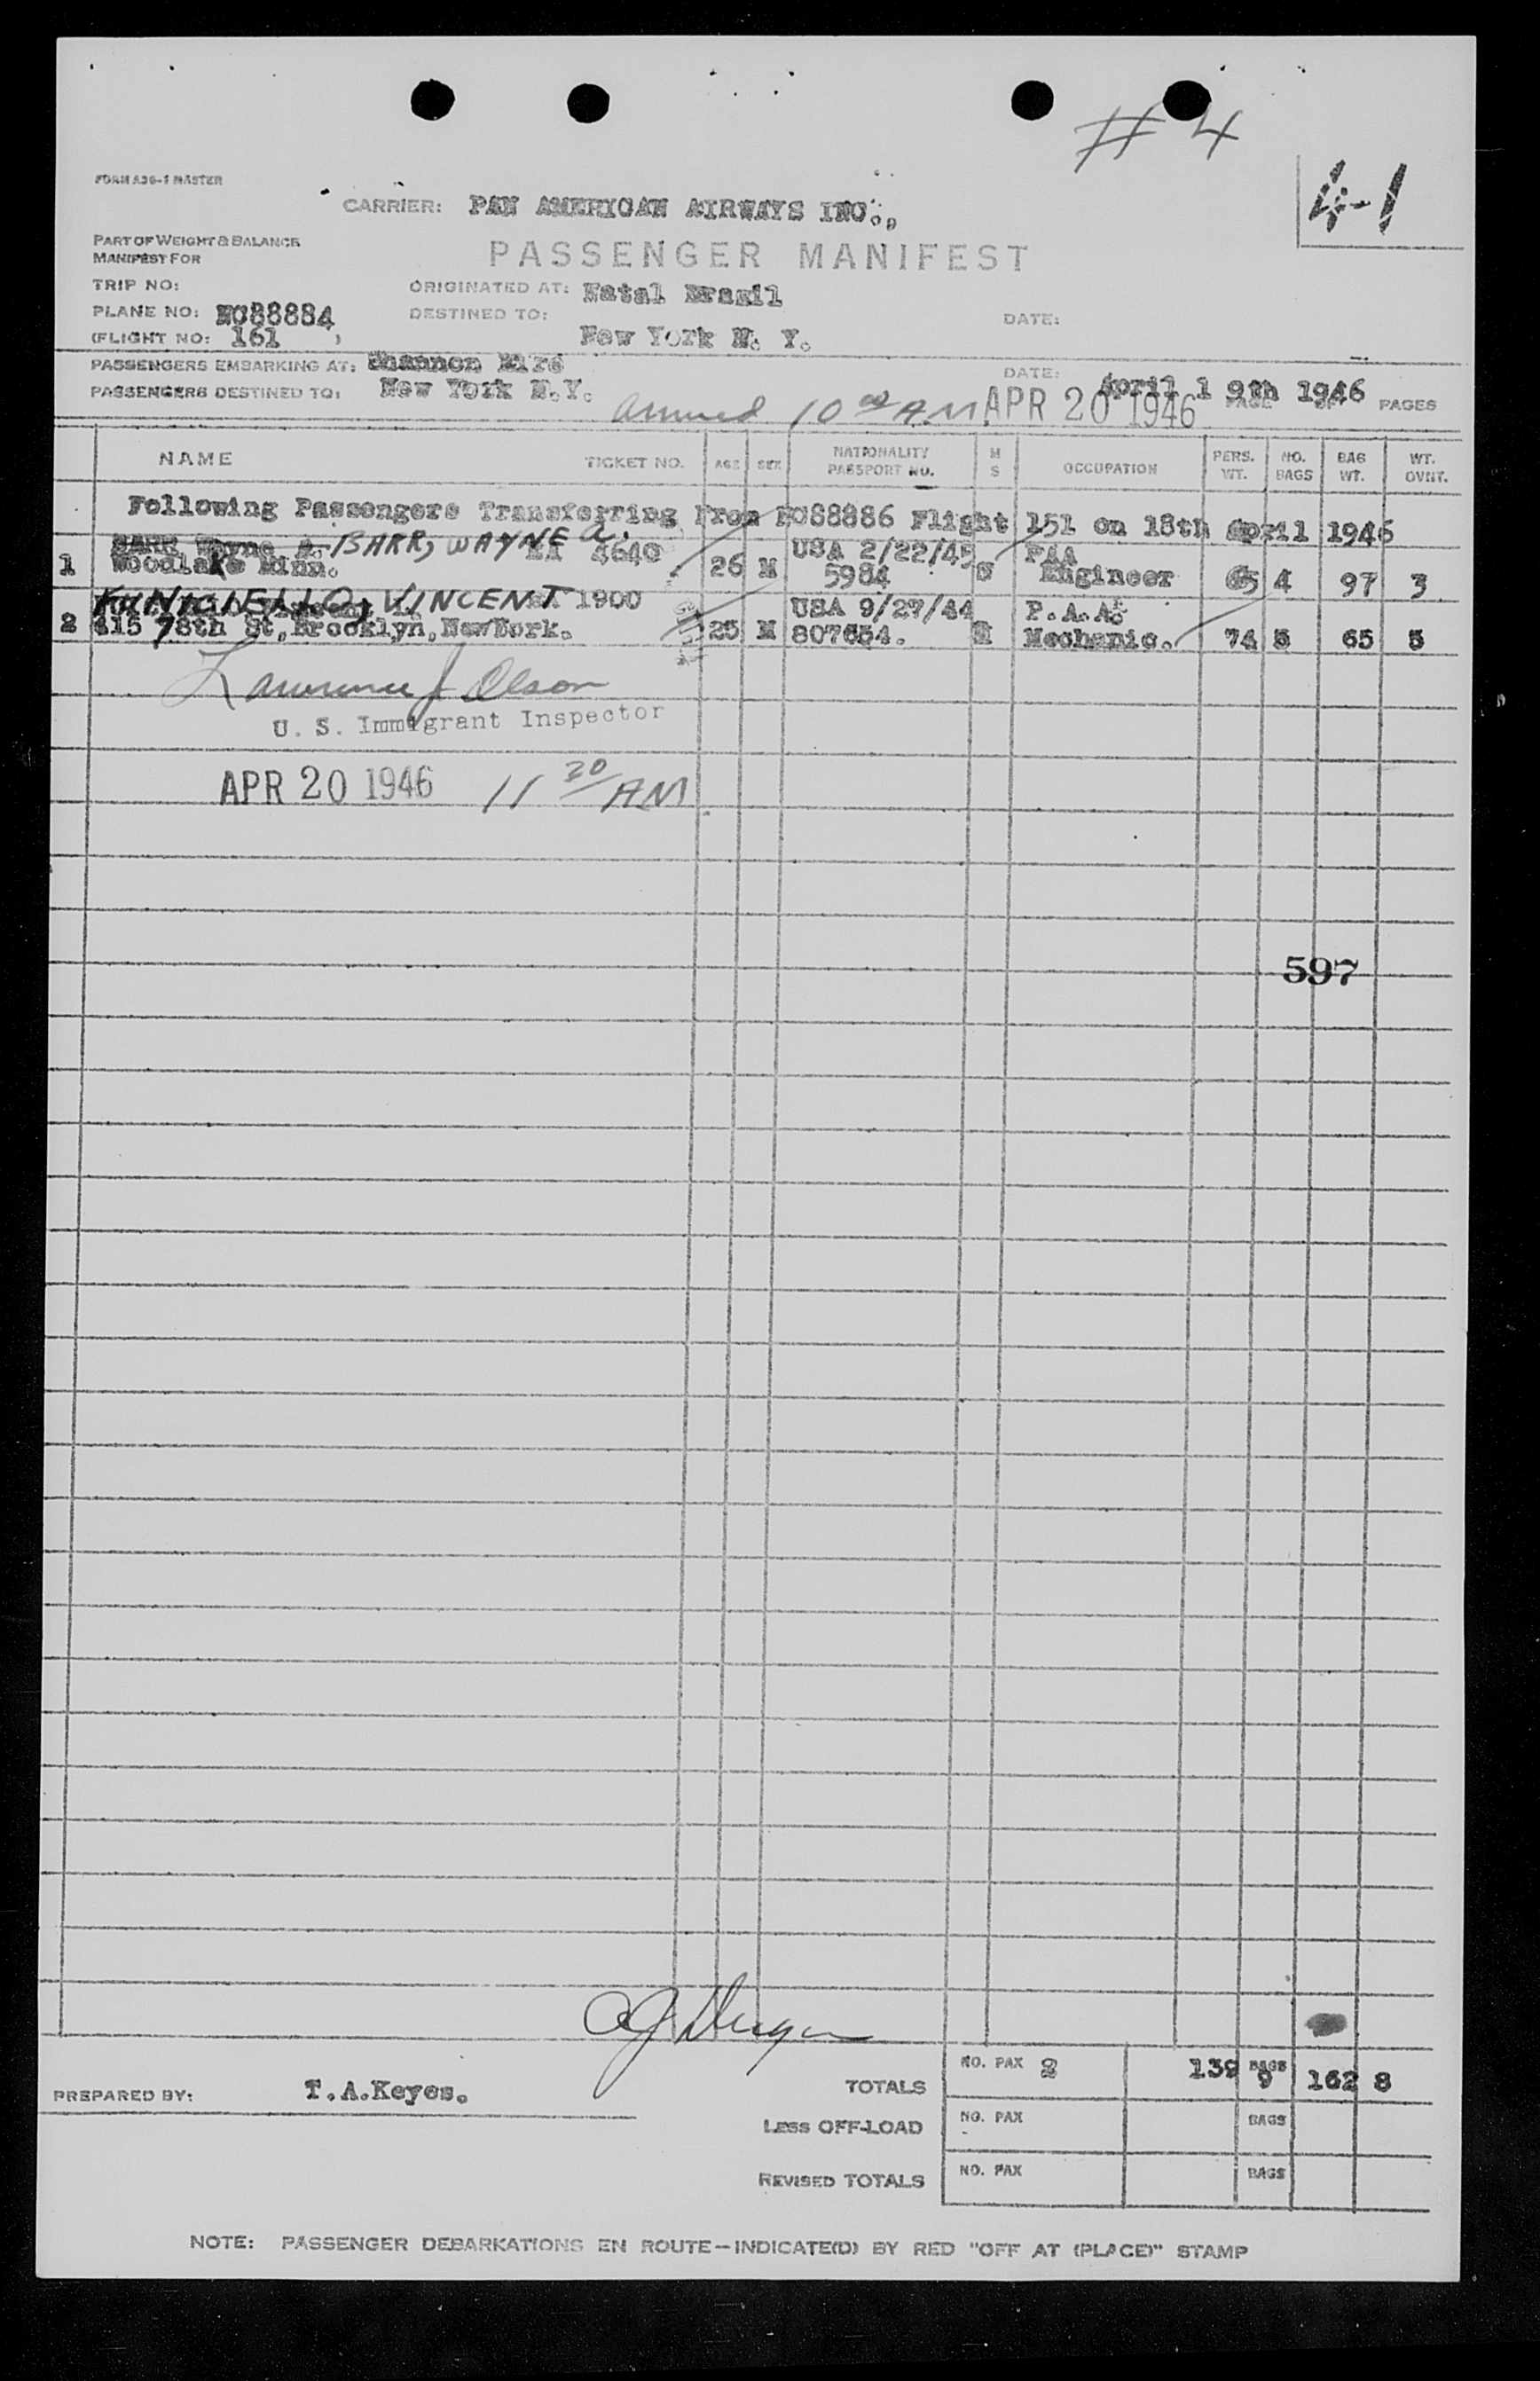 # 4
4-1
FORM A30-1 MASTER
CARRIER: PAN AMERICAN AIRWAYS INC.,
PART OF WEIGHT & BALANCE
MANIFEST FOR
PASSENGER MANIFEST
TRIP NO:
ORIGINATED AT: Natal Brazil
PLANE NO: NC88884
DESTINED TO: New York N. Y.
DATE:
(FLIGHT NO: 161 )
PASSENGERS EMBARKING AT: Shannon Eire
DATE: April 19th 1946
PASSENGERS DESTINED TO: New York N.Y.
Arrived 10 00 AM APR 20 1946
PAGE OF PAGES
NAME TICKET NO. AGE SEX NATIONALITY PASSPORT NO. M S OCCUPATION PERS. WT. NO. BAGS BAG WT. WT. OVNT.
Following Passengers Transferring From NC88886 Flight 151 on 18th April 1946
BARR Wayne A. BARR, WAYNE A. 4640 USA 2/22/45 PAA
1 Woodlake Minn. 26 M 5984 S Engineer 65 4 97 3
VINCENT 1900 USA 9/27/44 P.A.A.
2 415 78th St, Brooklyn, New York. 25 M 807654. M Mechanic. 74 5 65 5
Lawrence J Olson
U. S. Immigrant Inspector
APR 20 1946 11 20 AM
597
PREPARED BY: T.A.Keyes.
TOTALS NO. PAX 2 139 BAGS 9 162 8
Less OFF-LOAD NO. PAX BAGS
REVISED TOTALS NO. PAX BAGS
NOTE: PASSENGER DEBARKATIONS EN ROUTE—INDICATE(D) BY RED "OFF AT (PLACE)" STAMP